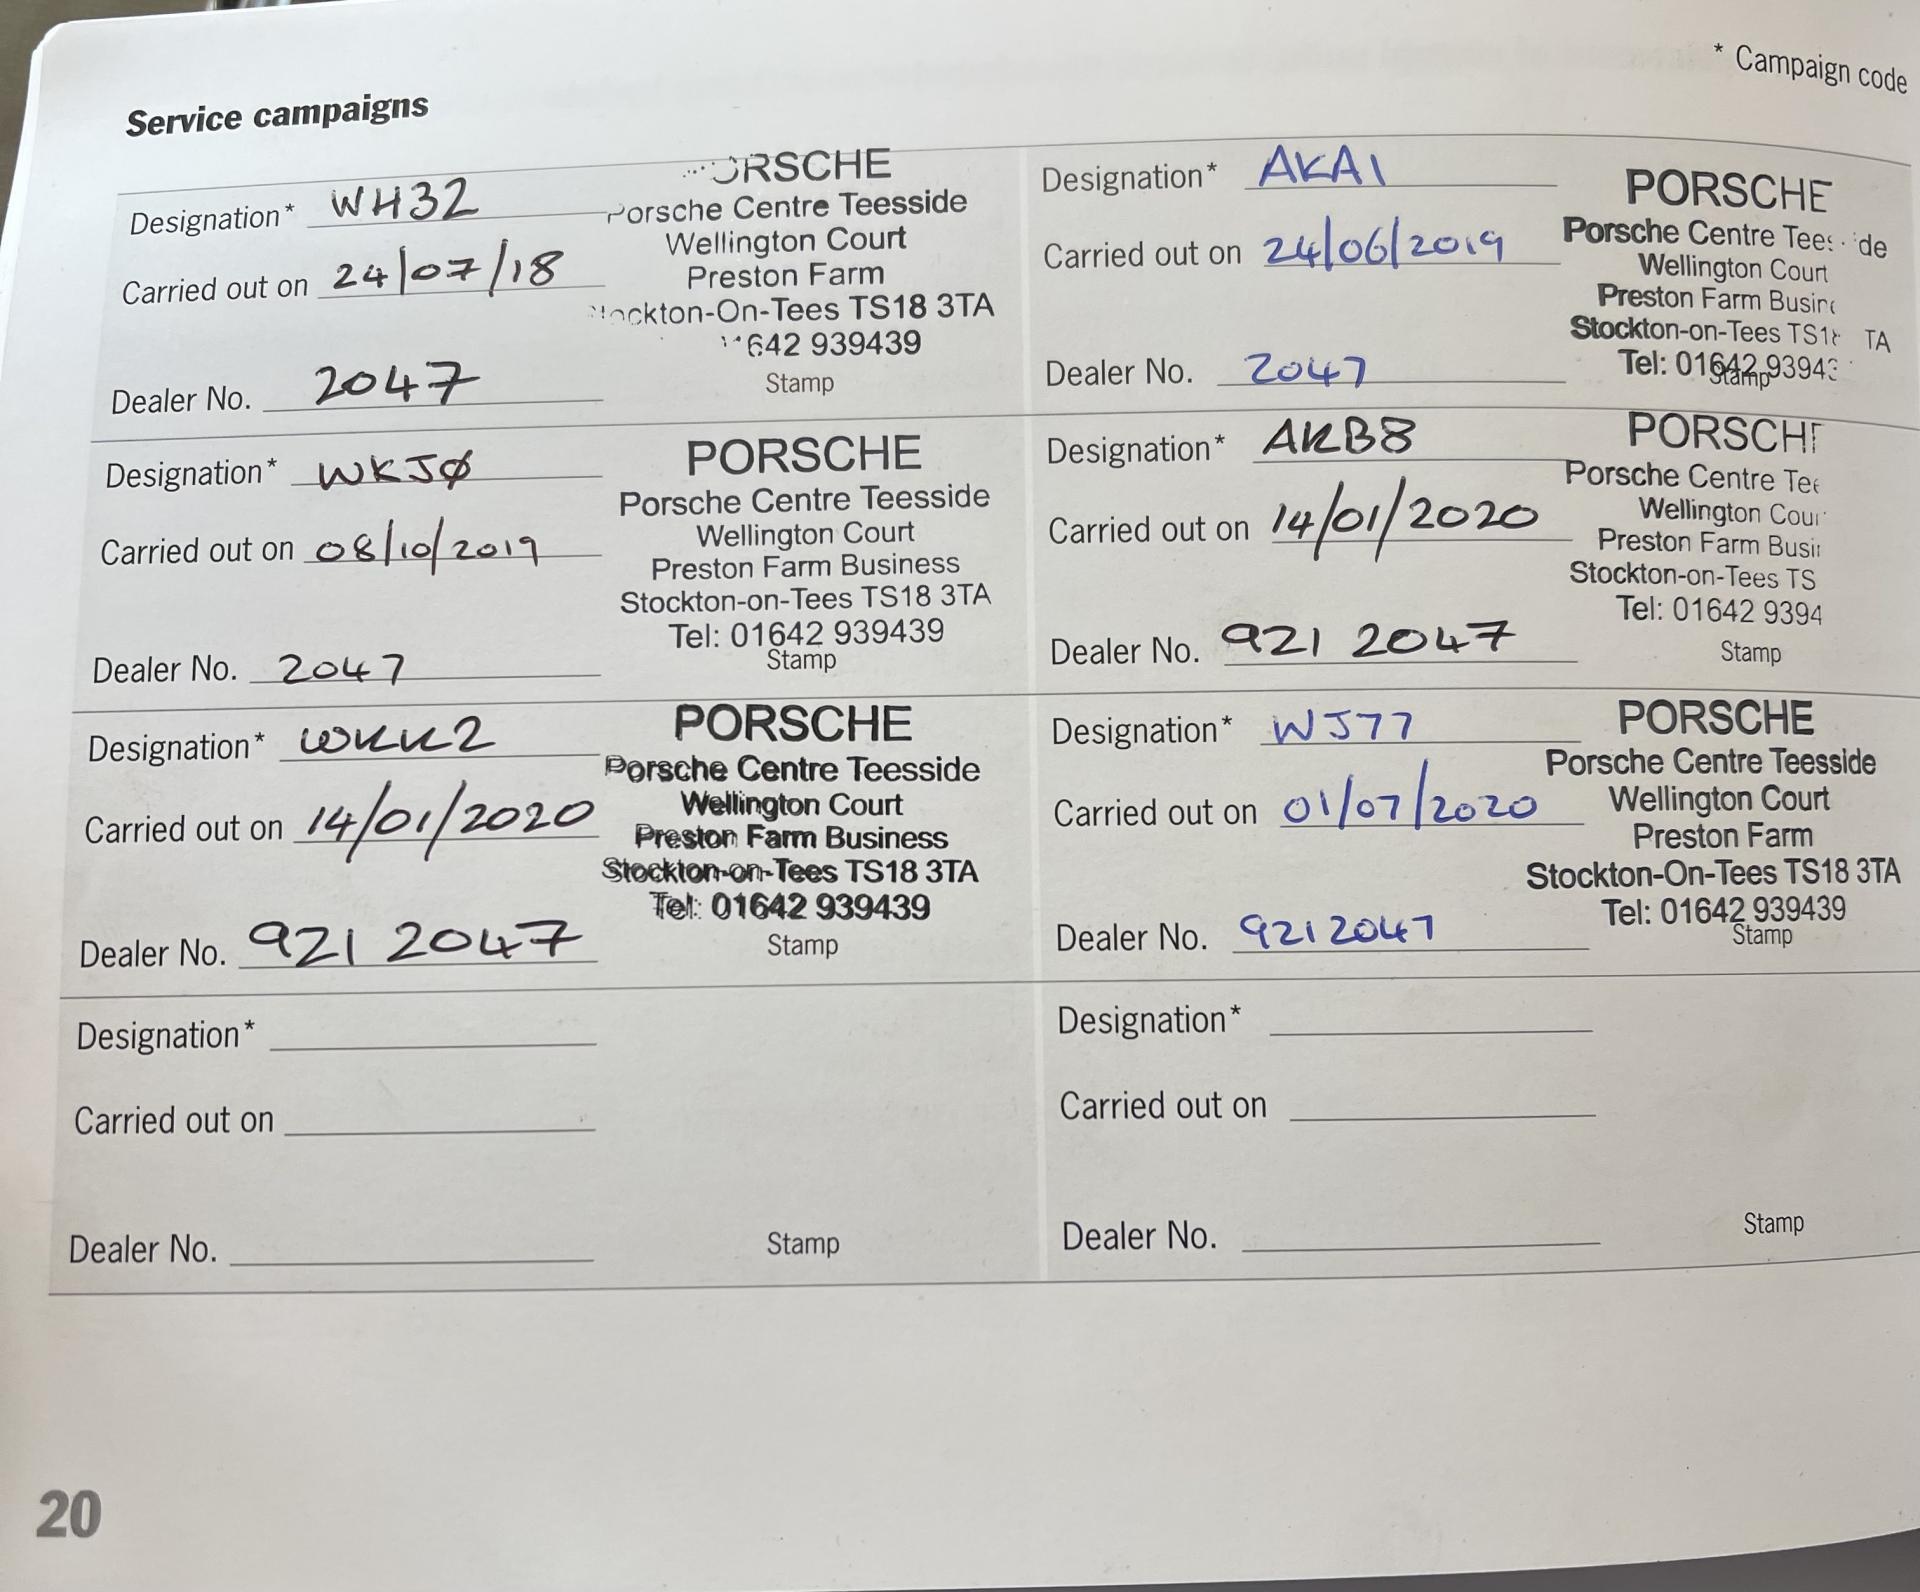 * Campaign code
Service campaigns
Designation* WH32
Carried out on 24/07/18
Dealer No. 2047
ORSCHE
Porsche Centre Teesside
Wellington Court
Preston Farm
Stockton-On-Tees TS18 3TA
642 939439
Stamp
Designation* AKA1
Carried out on 24/06/2019
Dealer No. 2047
PORSCHE
Porsche Centre Tees ide
Wellington Court
Preston Farm Busin
Stockton-on-Tees TS18 TA
Tel: 01642 93943
Stamp
Designation* WKJØ
Carried out on 08/10/2019
Dealer No. 2047
PORSCHE
Porsche Centre Teesside
Wellington Court
Preston Farm Business
Stockton-on-Tees TS18 3TA
Tel: 01642 939439
Stamp
Designation* AKB8
Carried out on 14/01/2020
Dealer No. 921 2047
PORSCH
Porsche Centre Tee
Wellington Cour
Preston Farm Busi
Stockton-on-Tees TS
Tel: 01642 9394
Stamp
Designation* WKK2
Carried out on 14/01/2020
Dealer No. 921 2047
PORSCHE
Porsche Centre Teesside
Wellington Court
Preston Farm Business
Stockton-on-Tees TS18 3TA
Tel: 01642 939439
Stamp
Designation* WJ77
Carried out on 01/07/2020
Dealer No. 9212047
PORSCHE
Porsche Centre Teesside
Wellington Court
Preston Farm
Stockton-On-Tees TS18 3TA
Tel: 01642 939439
Stamp
Designation*
Carried out on
Dealer No.
Stamp
Designation*
Carried out on
Dealer No.
Stamp
20